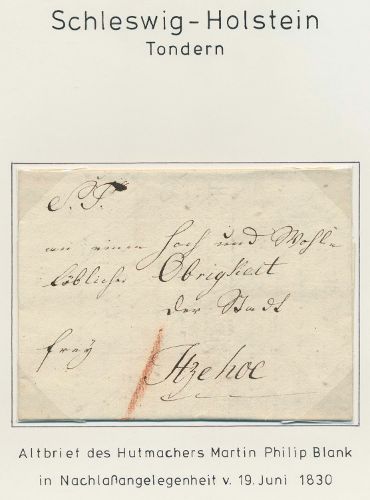 Schleswig-Holstein
Tondern
S. T.
an einen Hoch und Wohl=
löblichen Obrigkeit
der Stadt
frey
Itzehoe
Altbrief des Hutmachers Martin Philip Blank
in Nachlaßangelegenheit v. 19. Juni 1830